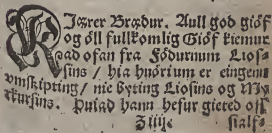 KIærer Brædur. Aull god giöf
og öll fullkomlig Giöf kiemur
nad ofan fra Födurnum Lios-
sins / hia huörium er eingenn
vmskipting / nie byting Liosins og My
rkursins. Þuiad hann hefur gieted oss
sialf-